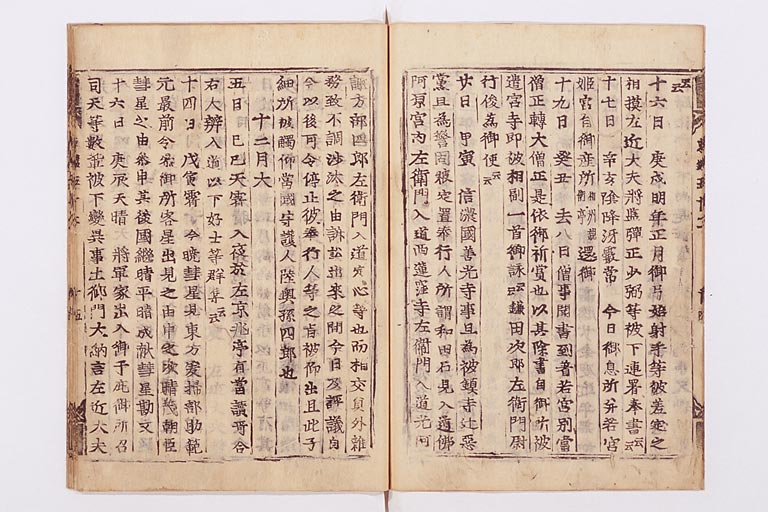 云云
十六日 庚戌明年正月御弓始射手等被差定之
相摸左近大夫將監彈正少弼等被下連署奉書云云
十七日 辛亥陰降冴霰常 今日御息所并若宮
姬宮自御産所相州亭還御
十九日 癸丑 去八日僧事聞書到著若宮別當
僧正轉大僧正是依御祈賞也以其除書自御所被
遣宮寺即被相副一首御詠云云鎌田次郎左衛門尉
行俊為御使云云
廿日 甲寅 信濃國善光寺事且為被鎮寺辺惡
黨且為警固被定置奉行人所謂和田石見入道佛
阿原宮內左衛門入道西蓮窪寺左衛門入道光阿
諏方部四郎左衛門入道定心等也而相交貝外雜
務致不調沙汰之由訴訟出來之間今日及評議自
令以後可令停止彼奉行人等之旨被仰出且此子
細所被觸仰當國守護人陸奥孫四郎也
十二月大
五日 己巳天霽晴入夜於左京兆亭有當講哥合
右大辨入道以下好士等群集云云
十四日 戊寅霽 今曉彗星見東方安掃部助範
元最前令參御所客星出見之由申之次晴茂朝臣
彗星之由參申其後國繼晴平晴成献彗星勘文
十六日 庚辰天晴 將軍家出入御于庇御所召
司天等數輩被下變異事土御門大納言左近大夫